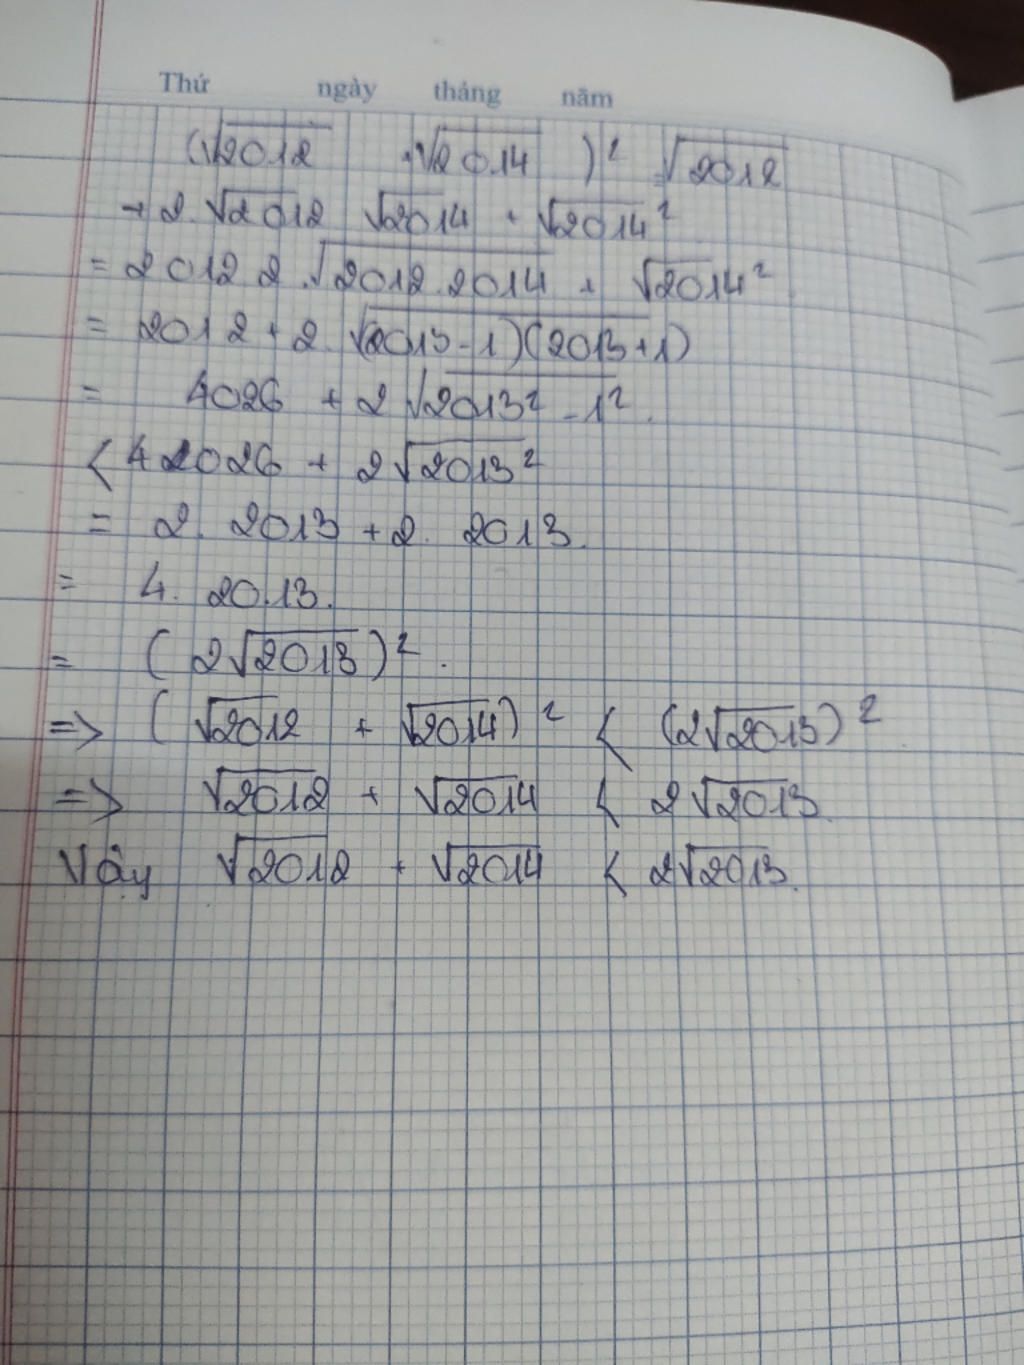 Thứ ngày tháng năm
(√2012 + √2014)² √2012
+ 2. √2012 √2014 + √2014²
= 2012 2 . √2012.2014 + √2014²
= 2012 + 2. √(2013-1)(2013+1)
= 4026 + 2√2013² - 1².
< 42026 + 2√2013²
= 2. 2013 + 2. 2013.
= 4. 2013.
= (2√2013)².
=> (√2012 + √2014)² < (2√2013)²
=> √2012 + √2014 < 2√2013.
Vậy √2012 + √2014 < 2√2013.